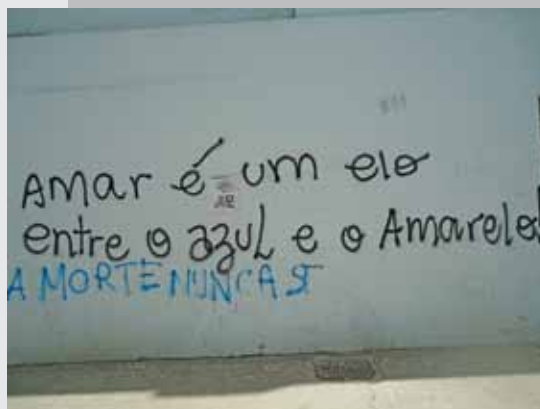 Amar é um elo
entre o azul e o Amarelo
A MORTE NUNCA